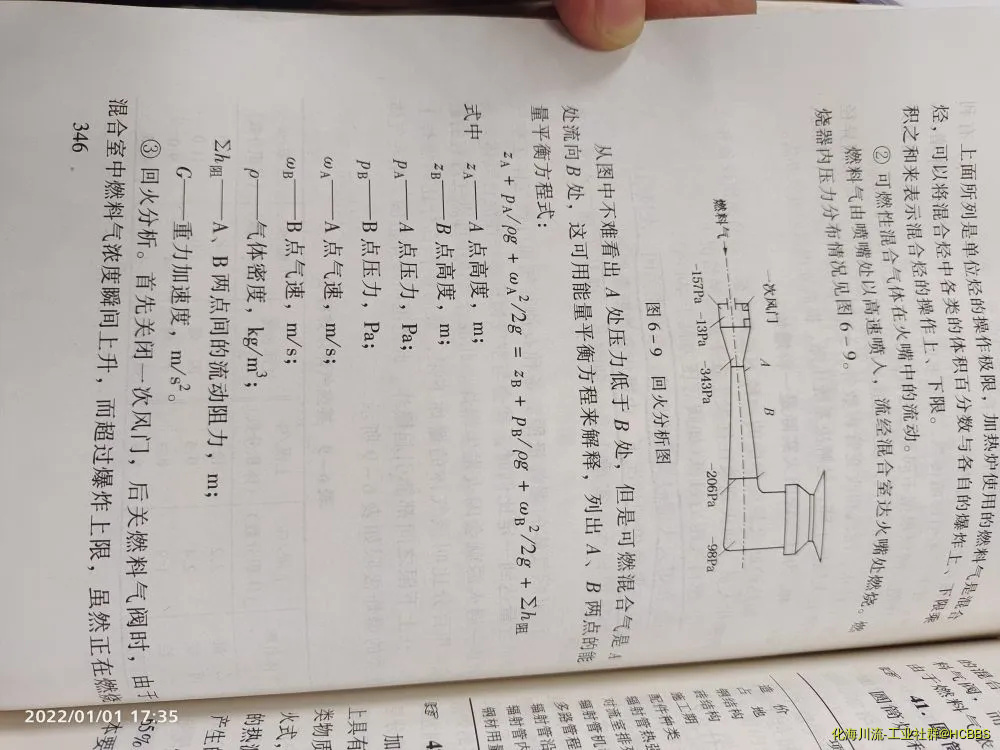 上面所列是单位烃的操作极限，加热炉使用的燃料气是混合
烃，可以将混合烃中各类的体积百分数与各自的爆炸上、下限乘
积之和来表示混合烃的操作上、下限。
② 可燃性混合气体在火嘴中的流动。
燃料气由喷嘴处以高速喷入，流经混合室达火嘴处燃烧。燃
烧器内压力分布情况见图 6-9。
一次风门
A
B
燃料气
-157Pa
-13Pa
-343Pa
-206Pa
-98Pa
图 6-9 回火分析图
从图中不难看出 A 处压力低于 B 处，但是可燃混合气是 A
处流向 B 处，这可用能量平衡方程来解释，列出 A、B 两点的能
量平衡方程式：
z_A + p_A/ρg + ω_A²/2g = z_B + p_B/ρg + ω_B²/2g + Σh阻
式中 z_A——A 点高度，m；
z_B——B 点高度，m；
p_A——A 点压力，Pa；
p_B——B 点压力，Pa；
ω_A——A 点气速，m/s；
ω_B——B 点气速，m/s；
ρ——气体密度，kg/m³；
Σh阻——A、B 两点间的流动阻力，m；
G——重力加速度，m/s²。
③ 回火分析。首先关闭一次风门，后关燃料气阀时，由于
混合室中燃料气浓度瞬间上升，而超过爆炸上限，虽然正在燃烧
346
的混合
科气阀，而
由于燃料气
41. 圆
圆筒炉
造价
占地
钢结构
砖结构
施工期
配件种类
辐射管热强
对流室排列
辐射管机
多路管程
辐射管沿
辐射管内
钢材用量
加
上具有
类物质
火式，
的热流
产生的
5%
本要
2022/01/01 17:35
化海川流-工业社群@HCBBS